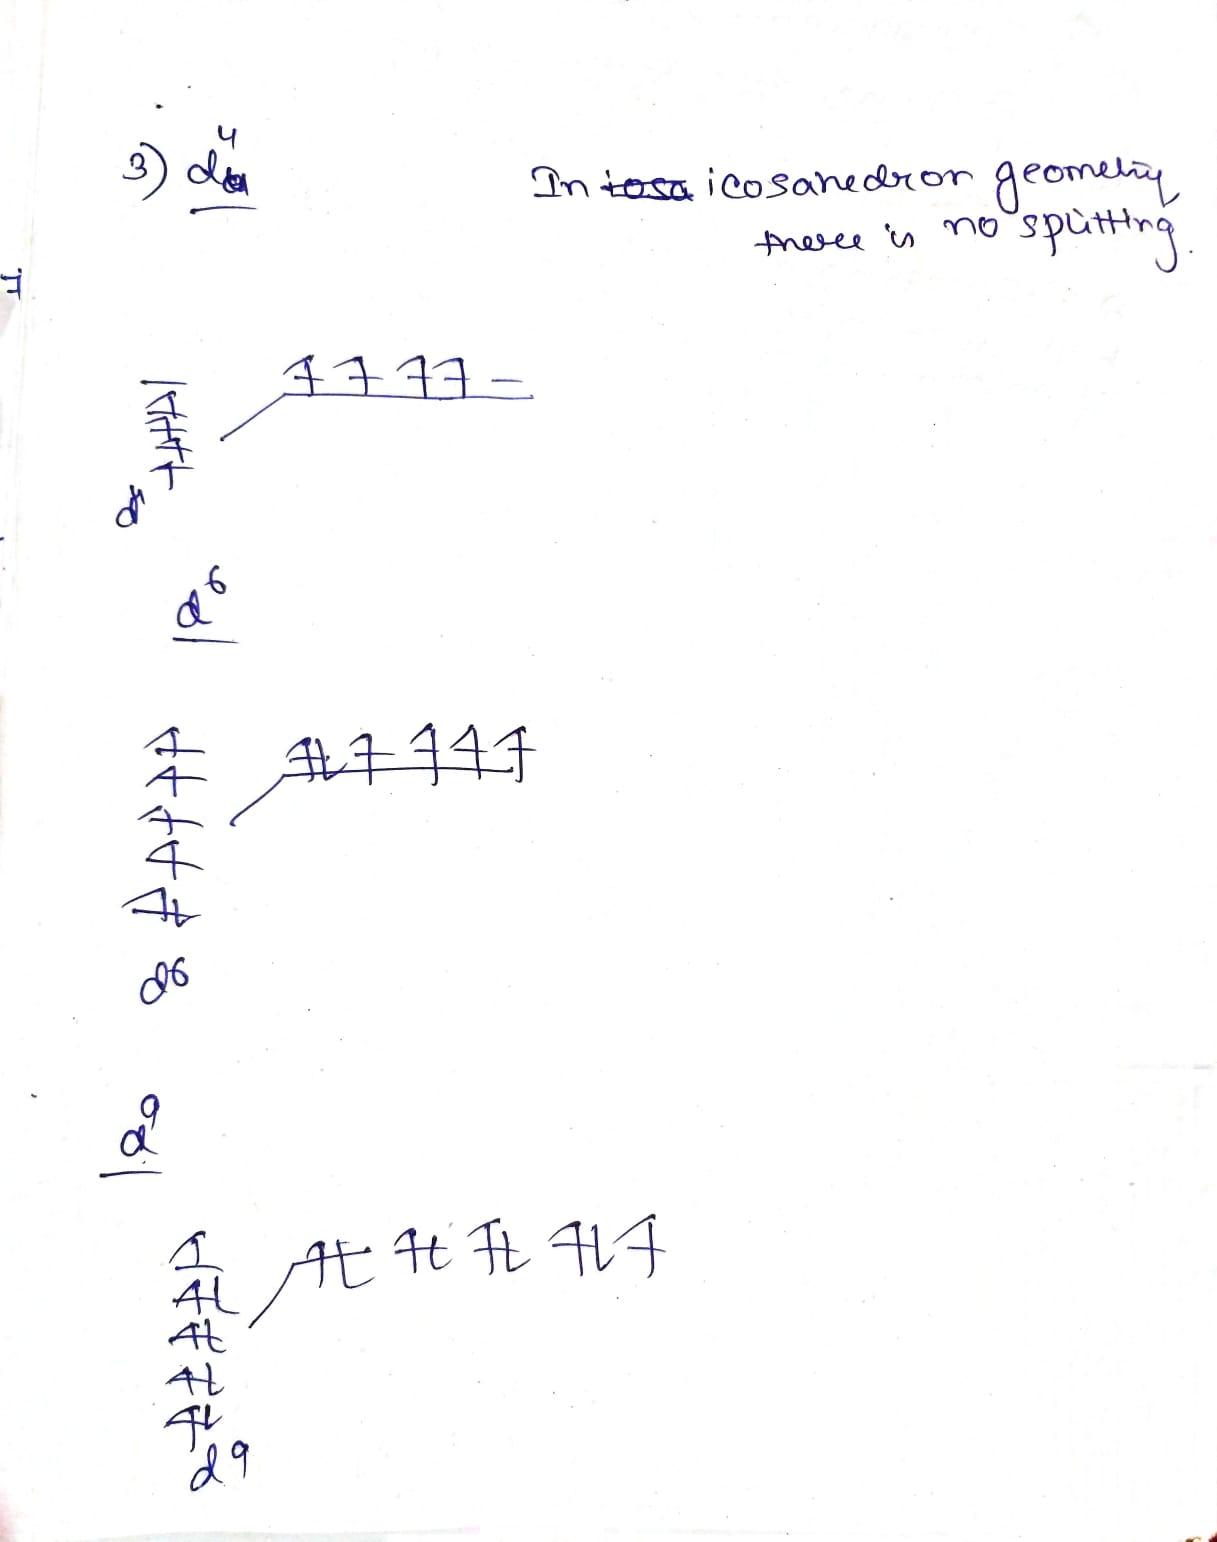 3) d⁴
In icosahedron geometry
there is no splitting.
d⁶
d6
d⁹
d9